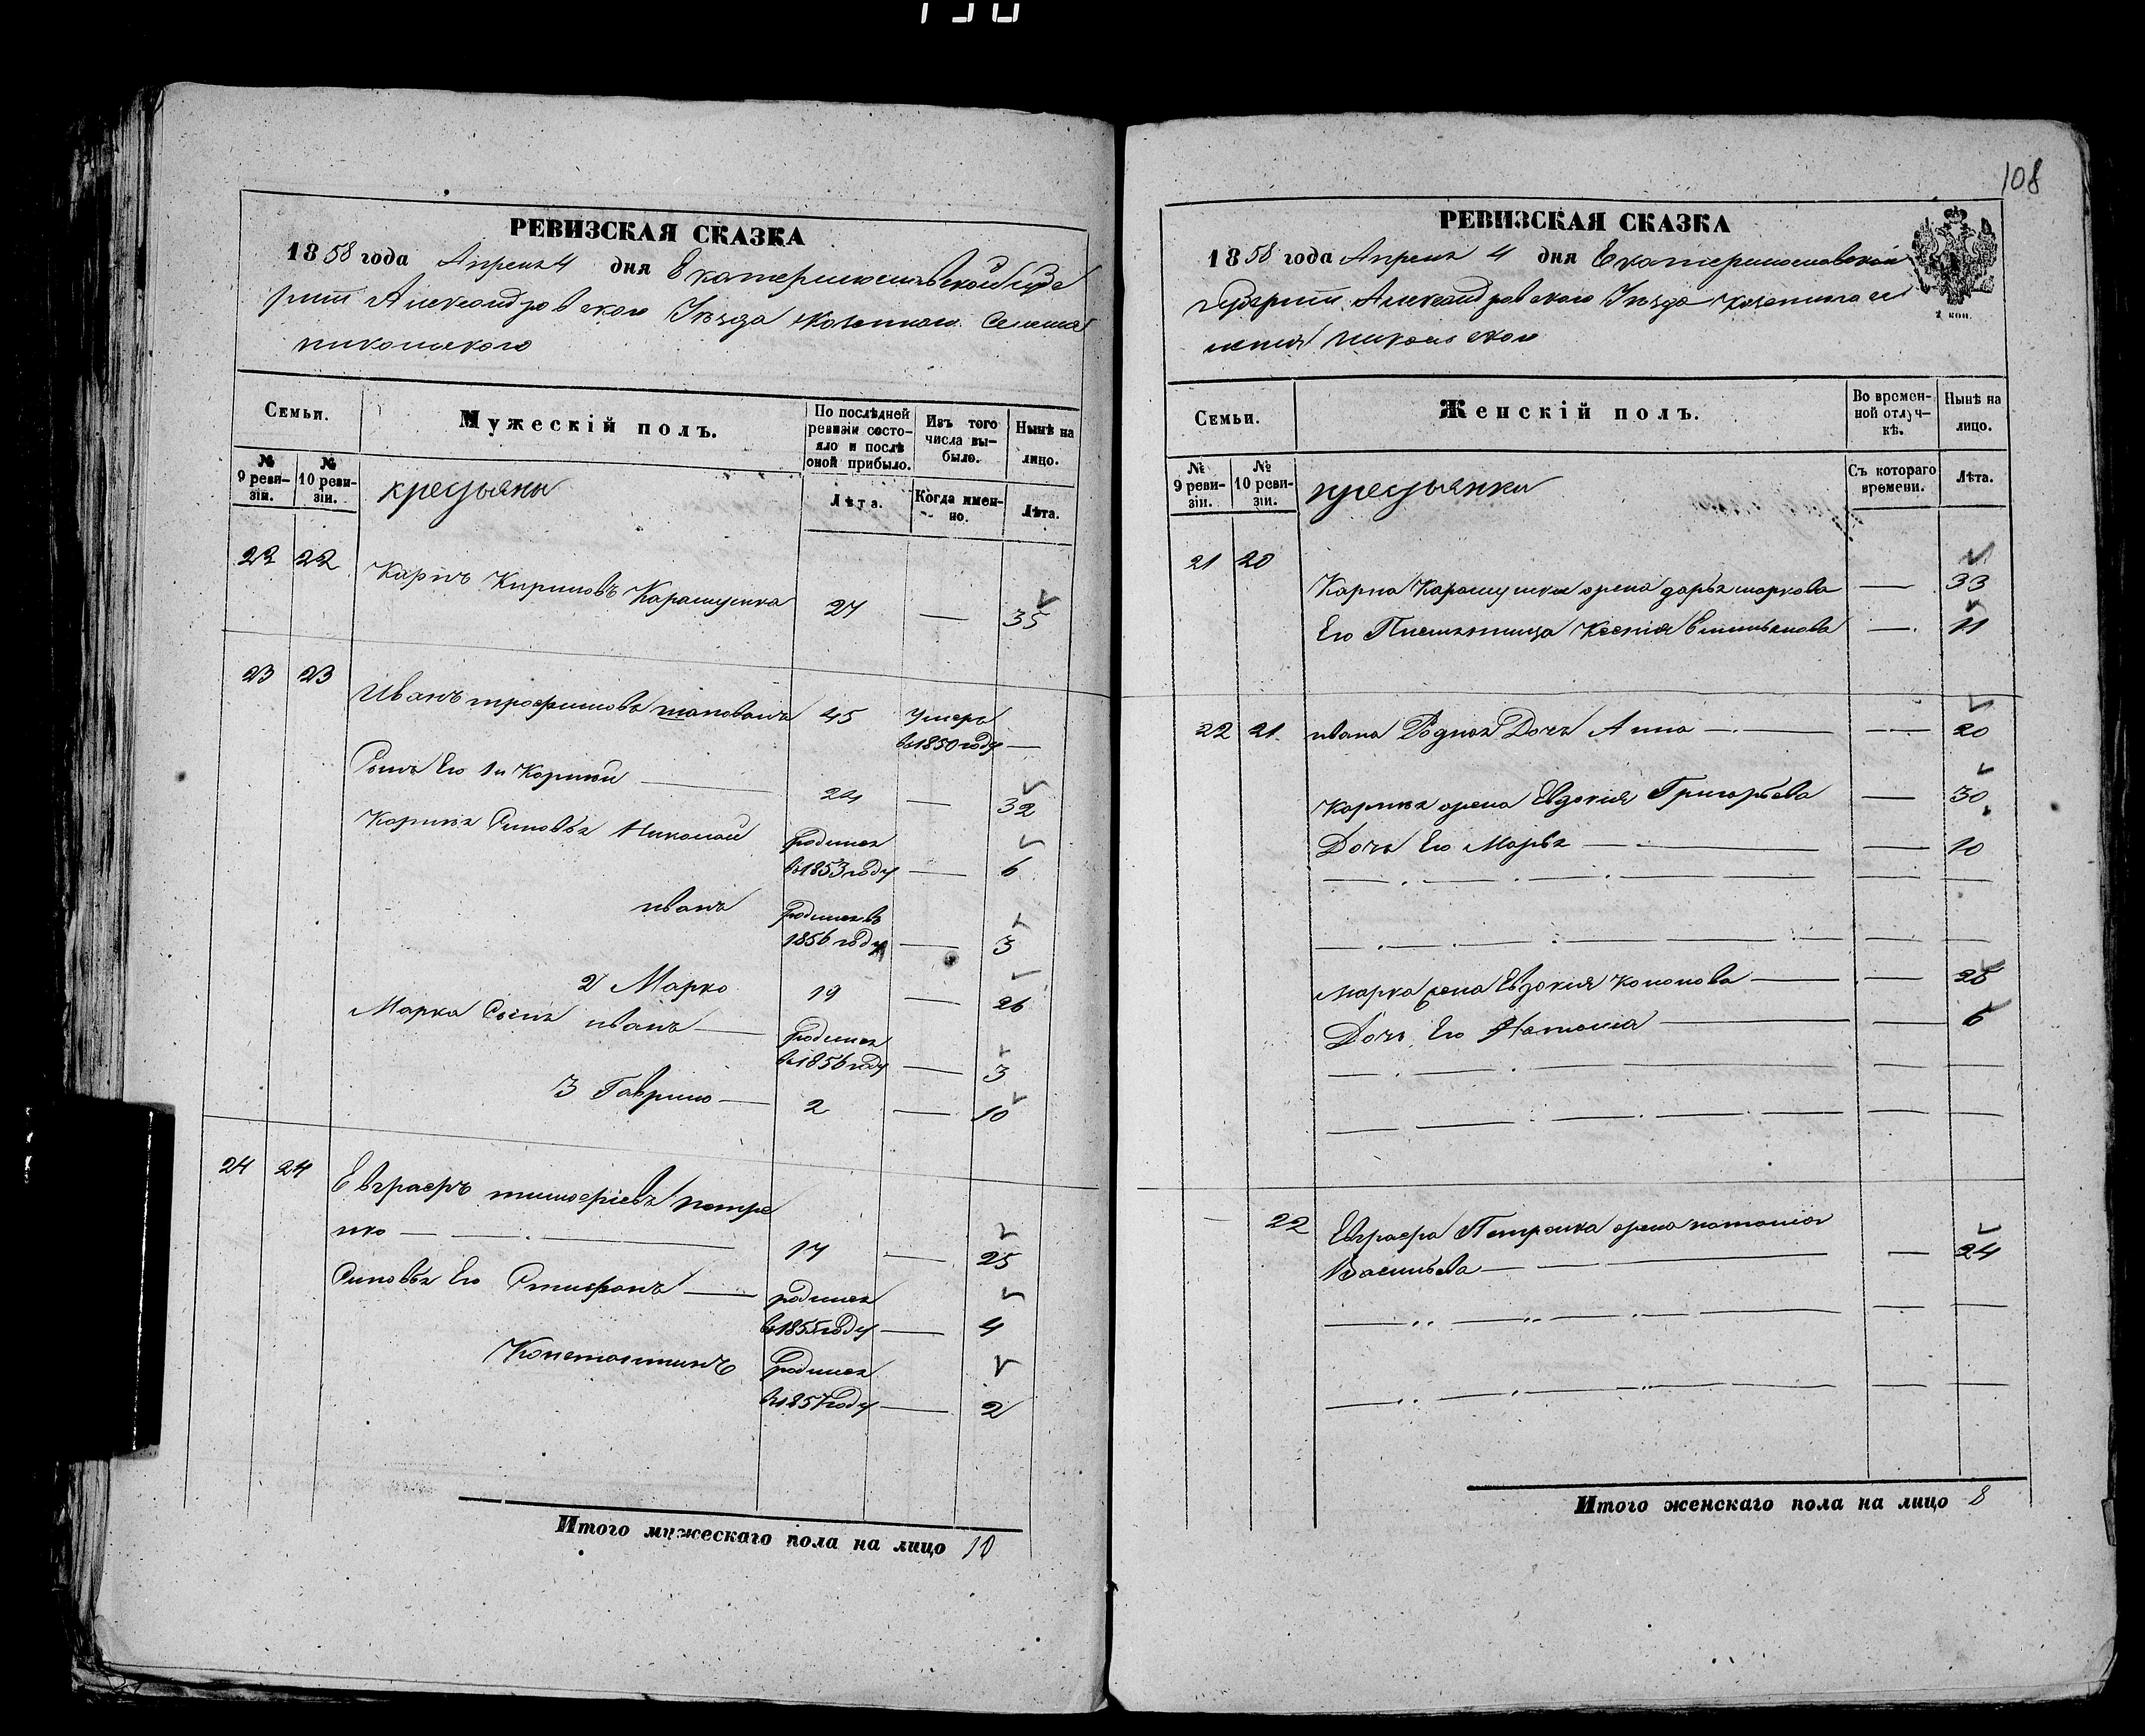 108
РЕВИЗСКАЯ СКАЗКА
1858 года Апреля 4 дня Екатеринославской Губе
рнiи Александровского Уезда казенного Селения
никольского
Семьи.
Мужескій полъ.
По послѣдней ревизіи состо-яло и послѣ оной прибыло.
Изъ того числа вы-было.
Нынѣ на лицо.
№ 9 реви-зіи.
№ 10 реви-зіи.
крестьяни
Лѣта.
Когда имен-но.
Лѣта.
22 22 Карпъ Кириловъ Карамушка 27 — 35
23 23 Иванъ трофимовъ шаповалъ 45 умеръ
въ1850году —
Сынъ Его 1й Корнѣй — 24 — 32
Корнѣя Синовья Николай родился
въ1853году — 6
иванъ родился въ
1856 году — 3
2 Марко 19 — 26
Марка Сынъ иванъ — родился
въ1856году — 3
3 Гаврило — 2 — 10
24 24 Евграфъ тимофіевъ петре
нко — 17 — 25
Синовья Его Стифанъ — родился
въ1855году — 4
Константинъ родился
въ1857году — 2
Итого мужескаго пола на лицо 10
РЕВИЗСКАЯ СКАЗКА
1858 года Апреля 4 дня Екатеринославской
губернiи Александровского Уезда казенного се
ления никольского
2 коп.
Семьи.
Женскій полъ.
Во времен-ной отлуч-кѣ.
Нынѣ на лицо.
№ 9 реви-зіи.
№ 10 реви-зіи.
крестьянки
Съ котораго времени.
Лѣта.
21 20 Карпа Карамушки жена дарья маркова — 33
Его Племянница Ксения Емильянова — 11
22 21 ивана Родная Дочь Анна — 20
Корнѣя жена Евдокия Григорьева — 30
Дочь Его Марья — 10
Марка жена Евдокия Кононова — 25
Дочь Его Наталия — 6
22 Евграфа Петренка жена наталия
Васильева — 24
Итого женскаго пола на лицо 8